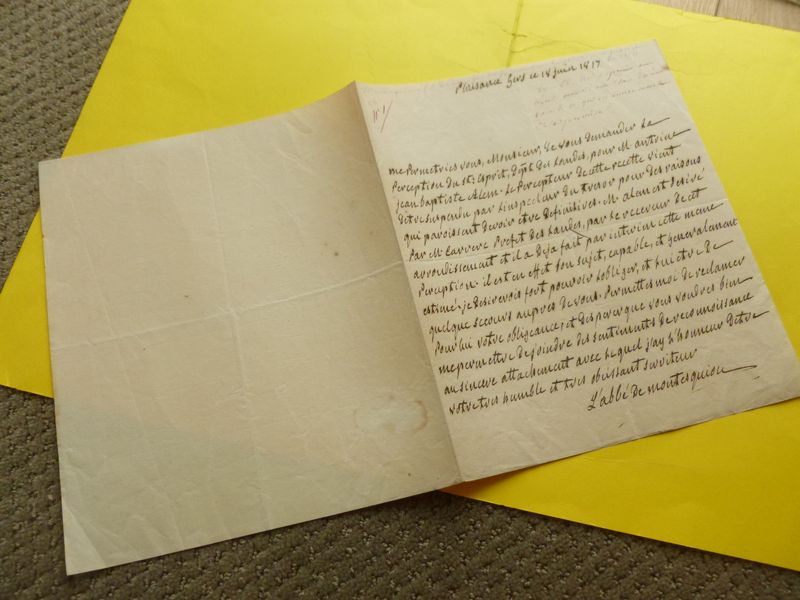 Plaisance Gers ce 18 juin 1817
me Permettries vous, Monsieur, de vous demander la
Perception du St. Esprit, Dépt. des Landes, pour M. antoine
jean baptiste Alem. Le Percepteur de cette recette vient
detre suspendu par L'inspecteur du tresor pour des raisons
qui paroissent devoir etre definitives. M. alem est desiré
Par M. Carrere Prefet des Landes, par le receveur de cet
arrondissement et il a deja fait par interim cette meme
Perception. il est en effet bon sujet, capable, et generalement
estimé. je desirerois fort pouvoir l'obliger, et lui etre de
quelque secours aupres de vous. Permettes moi de reclamer
Pour lui votre obligeance, et desperer que vous voudres bien
me permettre de joindre des sentiments de reconnoissance
au sincere attachement avec lequel j'ay l'honneur detre
votre tres humble et tres obeissant serviteur
L'abbé de montesquiou